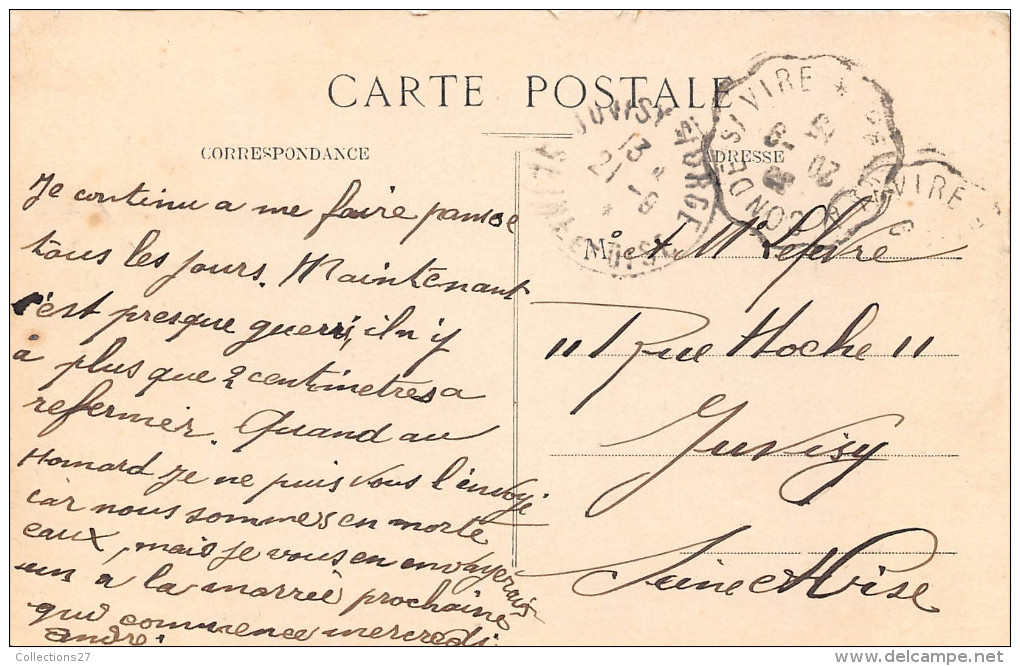 CARTE POSTALE
CORRESPONDANCE
ADRESSE
Je continu a me faire panse
tous les jours. Maintenant
c'est presque guerri, il n'y
à plus que 2 centimetres a
refermer. Quand au
Homard je ne puis vous l'envoyé
car nous sommes en morte
eaux, mais je vous en envoyerais
un a la marrée prochaine
qui commence mercredi.
andré.
JUVISY-S-ORGE
13
21 -9
SEINE & OISE
CONDÉ S/ VIRE
20 -9
VIRE
M et Me Lefevre
11 Rue Hoche 11
Juvisy
Seine et Oise
Collections27
delcampe.net